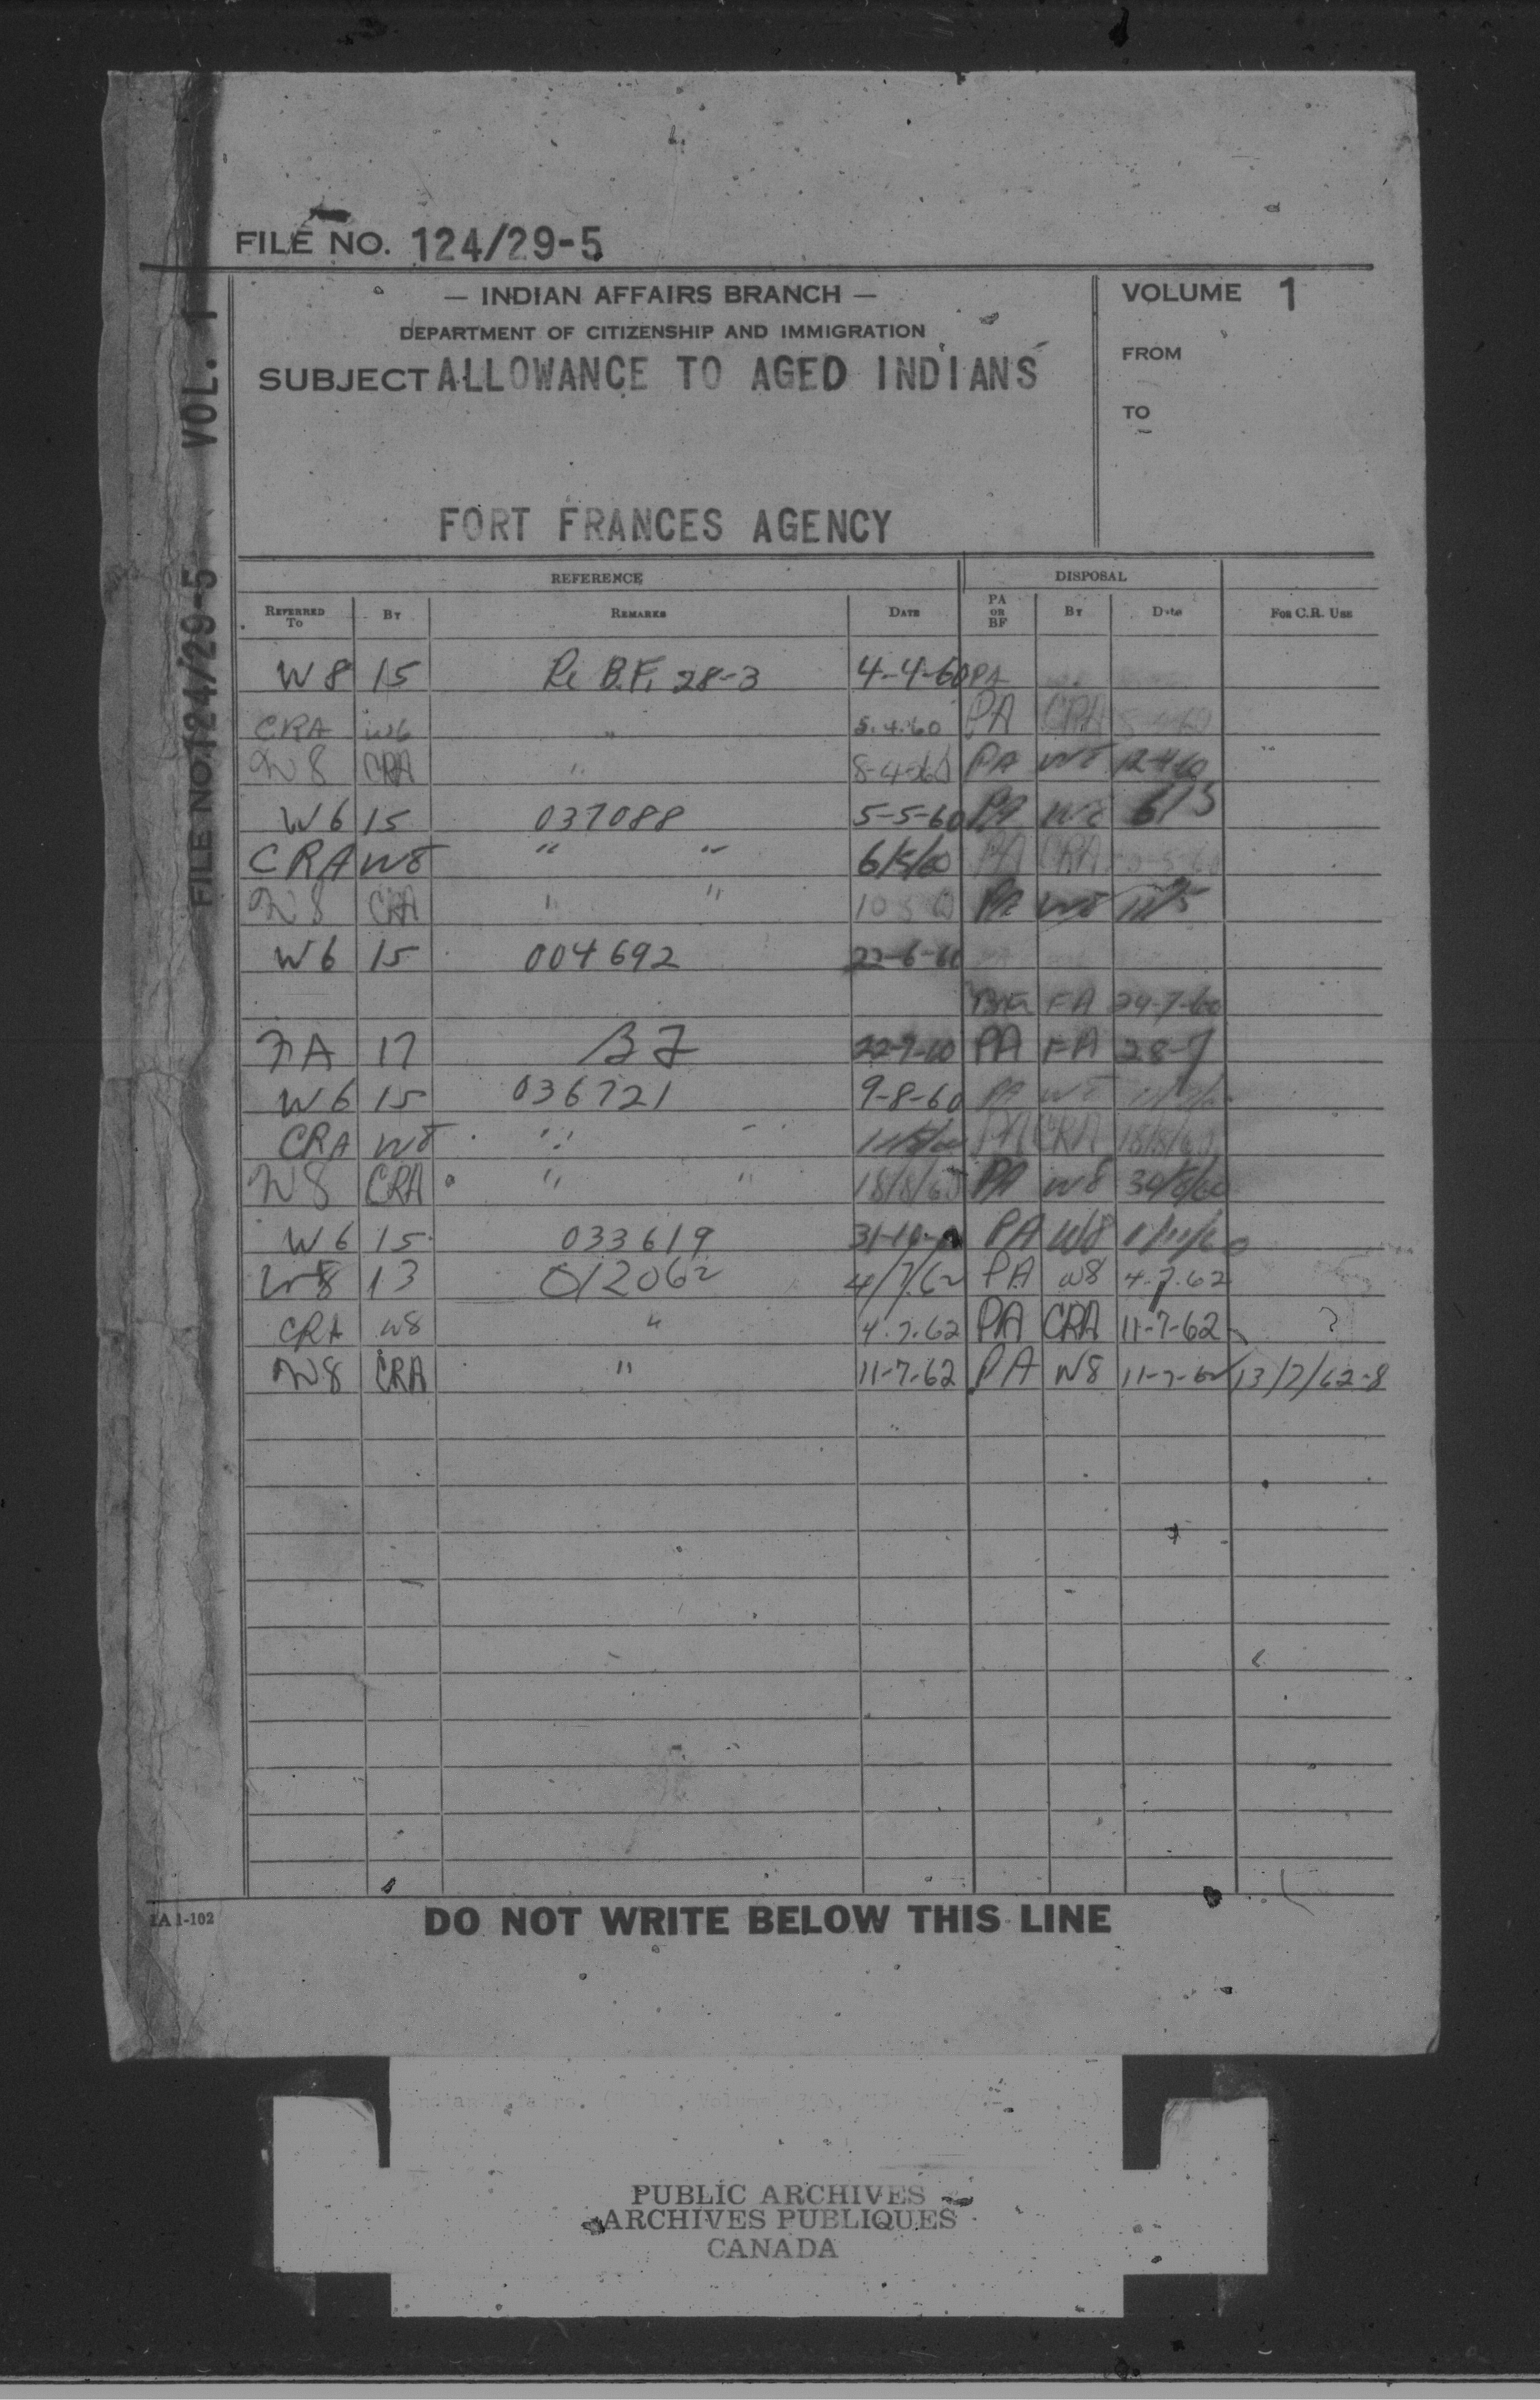 FILE NO. 124/29-5
— INDIAN AFFAIRS BRANCH —
DEPARTMENT OF CITIZENSHIP AND IMMIGRATION
SUBJECT ALLOWANCE TO AGED INDIANS
FORT FRANCES AGENCY
VOLUME 1
FROM
TO
FILE NO. 124/29-5 VOL. 1
REFERENCE DISPOSAL
REFERRED TO BY REMARKS DATE PA OR BF BY Date FOR C.R. USE
W8 15 Re B.F. 28-3 4-4-60 PA
CRA W6 " 5.4.60 PA CRA
W8 CRA " 8-4-60 PA W8 12-4-60
W6 15 037088 5-5-60 PA W8 6/5
CRA W8 " " 6/5/60 PA CRA
W8 CRA " " 10 5 60 PA W8 11/5
W6 15 004692 22-6-60
BF FA 24-7-60
FA 17 BF 22-7-60 PA FA 28-7
W6 15 036721 9-8-60 PA W8
CRA W8 " " PA CRA 18/8/60
W8 CRA " " 18/8/60 PA W8 30/8/60
W6 15 033619 31-10- PA W8 1/11/60
W8 13 012062 4/7/62 PA W8 4.7.62
CRA W8 " 4.7.62 PA CRA 11-7-62 ?
W8 CRA " 11-7-62 PA W8 11-7-62 13/7/62-8
IA 1-102
DO NOT WRITE BELOW THIS LINE
PUBLIC ARCHIVES
ARCHIVES PUBLIQUES
CANADA